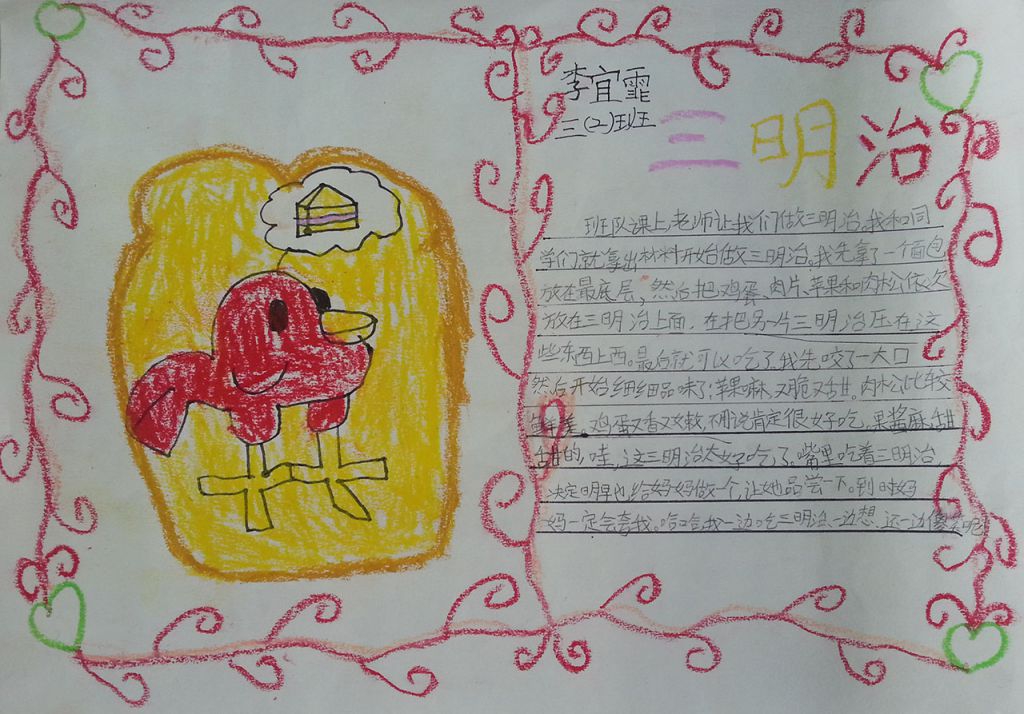 李宜霏
三(2)班
三明治
班队课上,老师让我们做三明治。我和同
学们就拿出材料开始做三明治。我先拿了一个面包
放在最底层,然后把鸡蛋、肉片、苹果和肉松依次
放在三明治上面,在把另一片三明治压在这
些东西上西。最后就可以吃了,我先咬了一大口
然后开始细细品味了;苹果嘛,又脆又甜。肉松比较
鲜美。鸡蛋又香又嫩,不用说肯定很好吃,果酱麻,甜
甜的,哇,这三明治太好吃了。嘴里吃着三明治,
决定明早也给妈妈做一个,让她品尝一下。到时妈
妈一定会夸我。哈哈我一边吃三明治,一边想,还一边傻笑呢